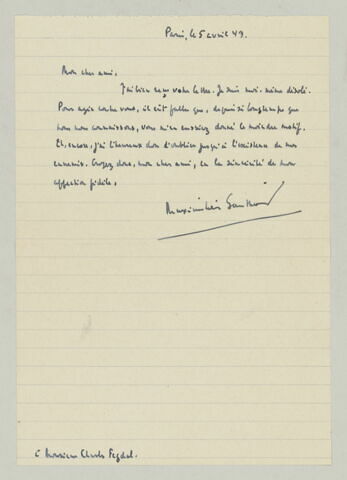 Paris, le 5 avril 49.
Mon cher ami,
J'ai bien reçu votre lettre. Je suis moi-même désolé.
Pour agir contre vous, il eût fallu que, depuis si longtemps que
nous nous connaissons, vous m'en eussiez donné le moindre motif.
Et, encore, j'ai l'heureux don d'oublier jusqu'à l'existence de mes
ennemis. Croyez donc, mon cher ami, en la sincérité de mon
affection fidèle,
Maximilien Gauthier
à Monsieur Charles Fegdal.